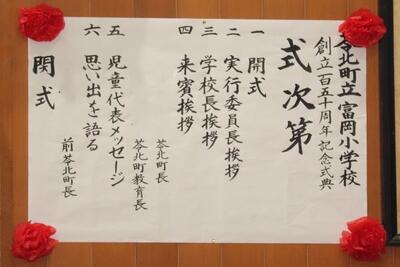 苓北町立富岡小学校
創立百五十周年記念式典
式次第
一 開式
二 実行委員長挨拶
三 学校長挨拶
四 来賓挨拶
苓北町長
苓北町教育長
五 児童代表メッセージ
六 思い出を語る
前苓北町長
閉式